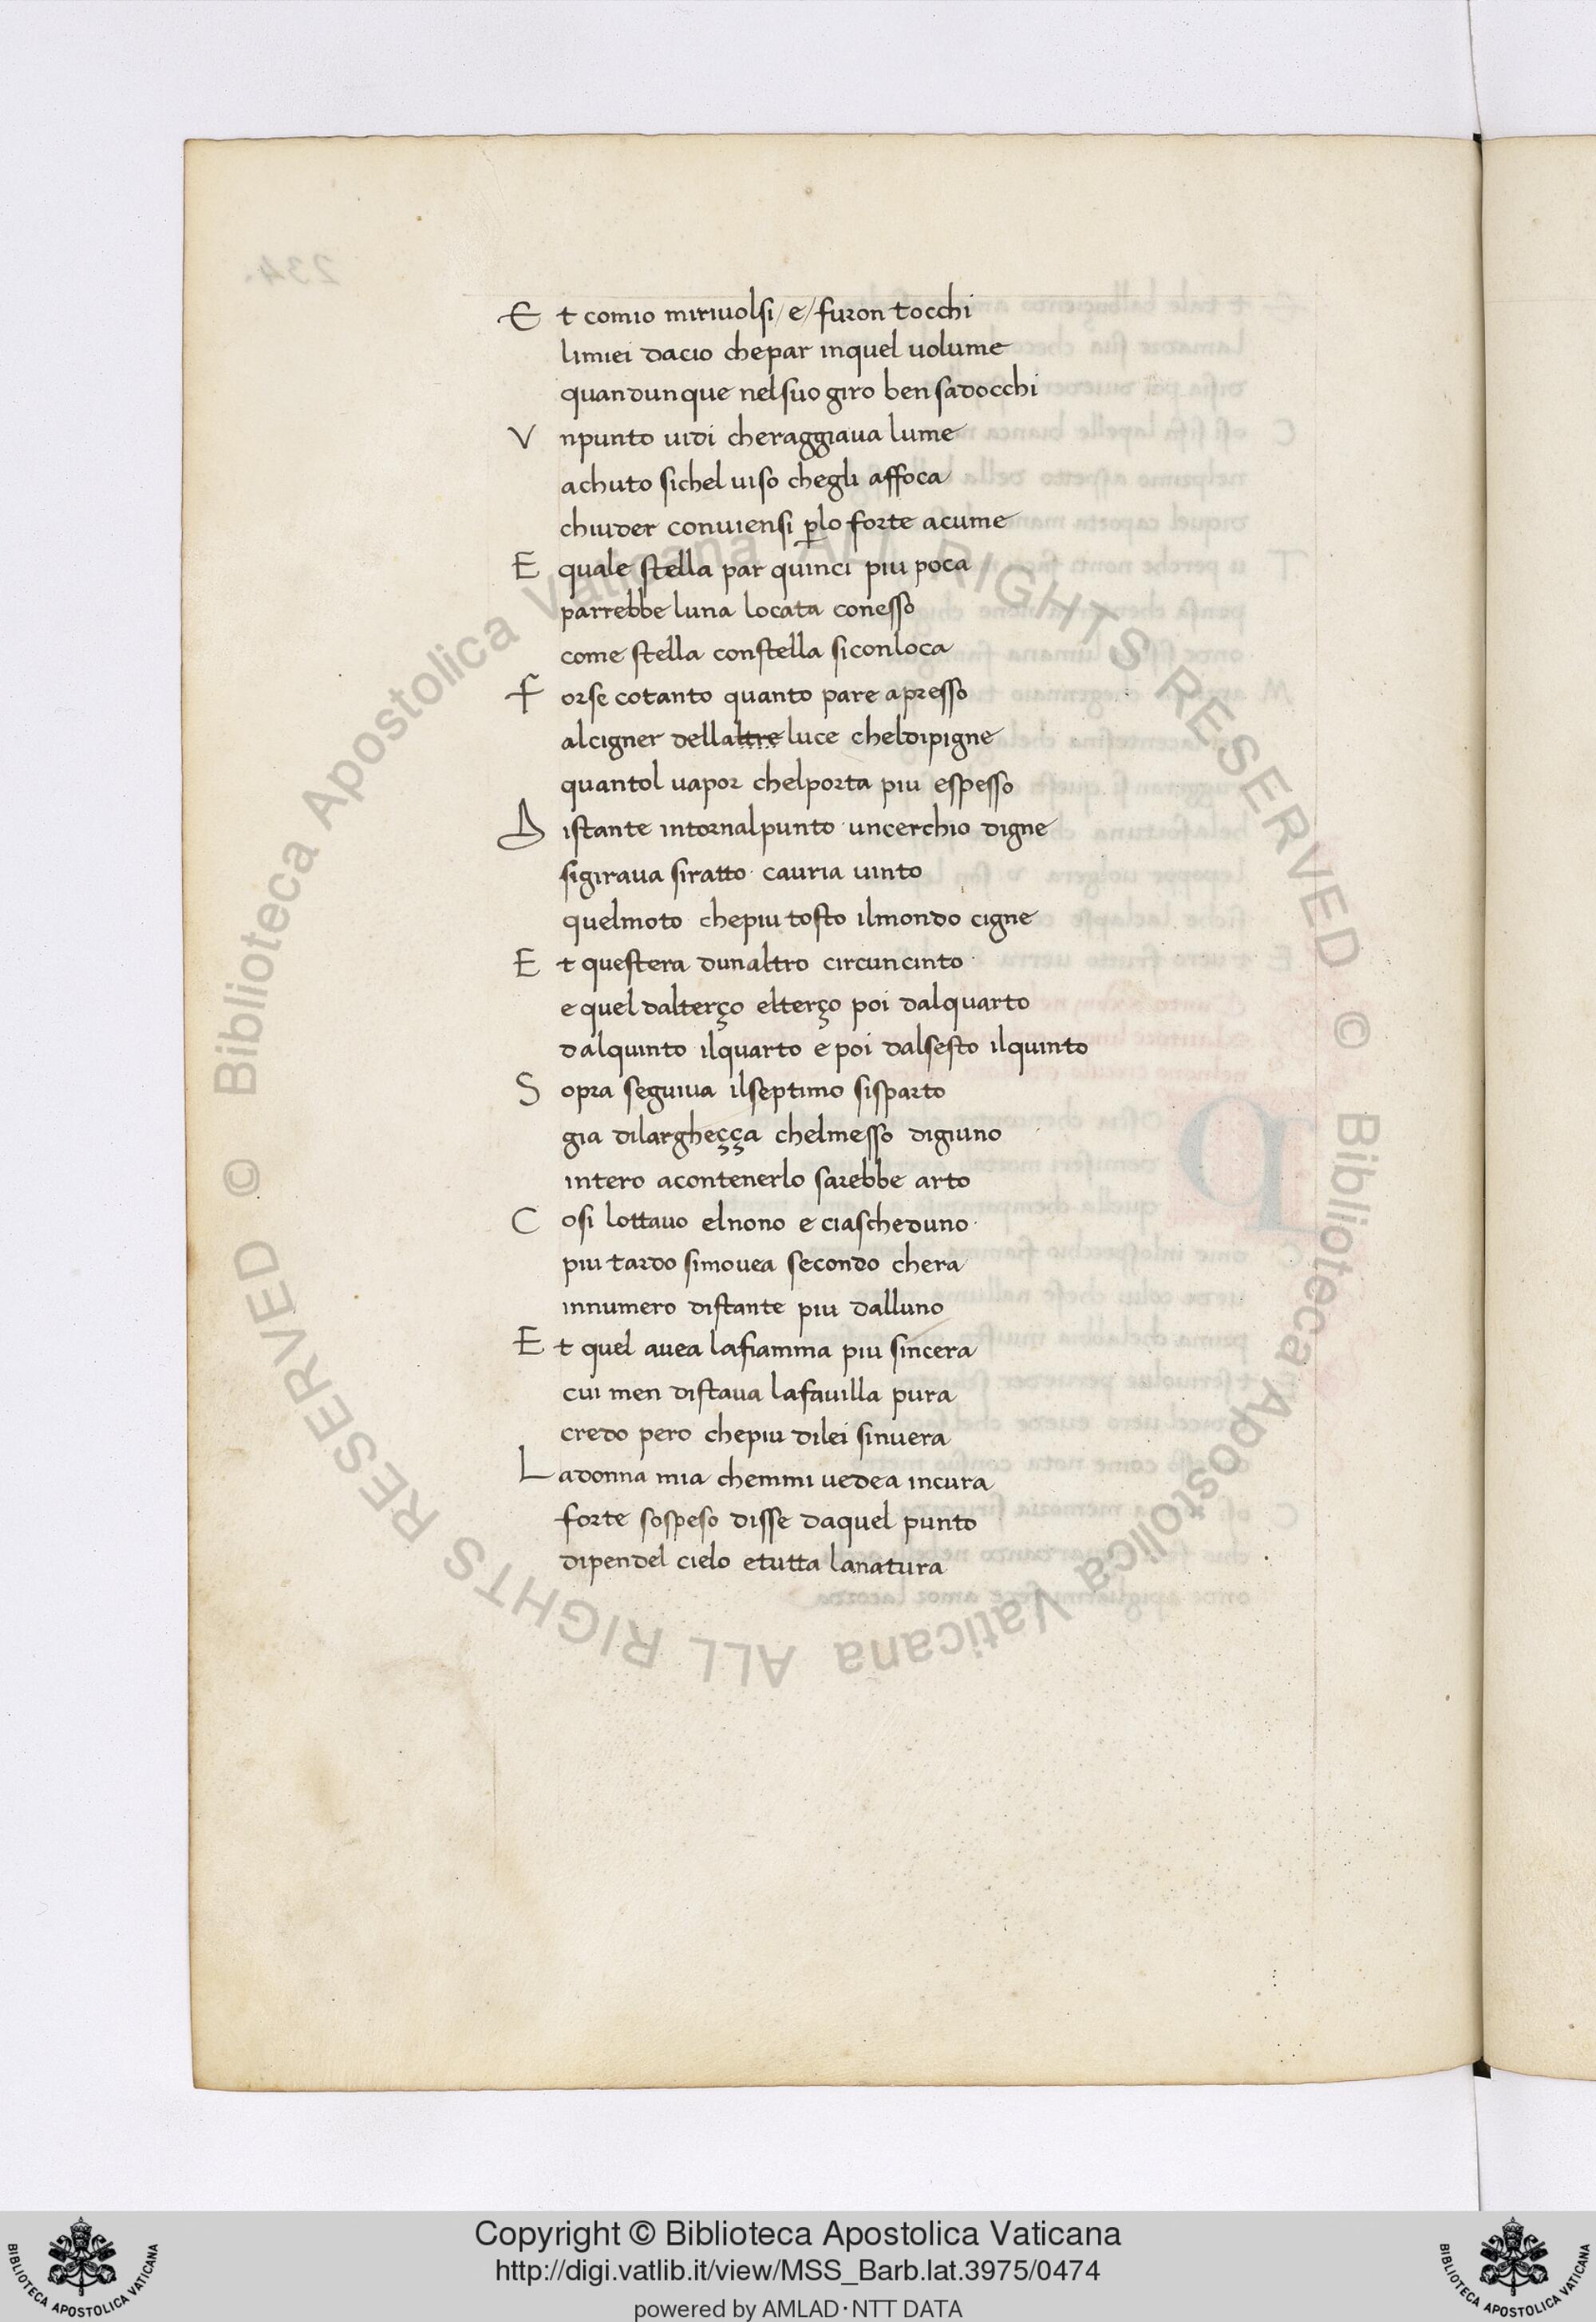 E t comio mirivolsi/e/furon tocchi
limiei dacio chepar inquel volume
quandunque nelsuo giro ben sadocchi
V npunto vidi cheraggiava lume
achuto sichel viso chegli affoca
chiuder conviensi ꝑlo forte acume
E quale stella par quinci piu poca
parrebbe luna locata conesso
come stella constella siconloca
F orse cotanto quanto pare apresso
alcigner dellaltre luce cheldipigne
quantol vapor chelporta piu espesso
D istante intornalpunto uncerchio digne
sigirava siratto cauria vinto
quelmoto chepiu tosto ilmondo cigne
E t questera dunaltro circuncinto
e quel dalterço elterço poi dalquarto
dalquinto ilquarto e poi dalsesto ilquinto
S opra seguiva ilseptimo sisparto
gia dilargheçça chelmesso digiuno
intero acontenerlo sarebbe arto
C osi lottavo elnono e ciascheduno
piu tardo simovea secondo chera
innumero distante piu dalluno
E t quel avea lafiamma piu sincera
cui men distava lafavilla pura
credo pero chepiu dilei sinvera
L adonna mia chemmi vedea incura
forte sospeso disse daquel punto
dipendel cielo etutta lanatura
Biblioteca Apostolica Vaticana ALL RIGHTS RESERVED ©
Biblioteca Apostolica Vaticana ALL RIGHTS RESERVED ©
Copyright © Biblioteca Apostolica Vaticana
http://digi.vatlib.it/view/MSS_Barb.lat.3975/0474
powered by AMLAD·NTT DATA
BIBLIOTECA APOSTOLICA VATICANA
BIBLIOTECA APOSTOLICA VATICANA